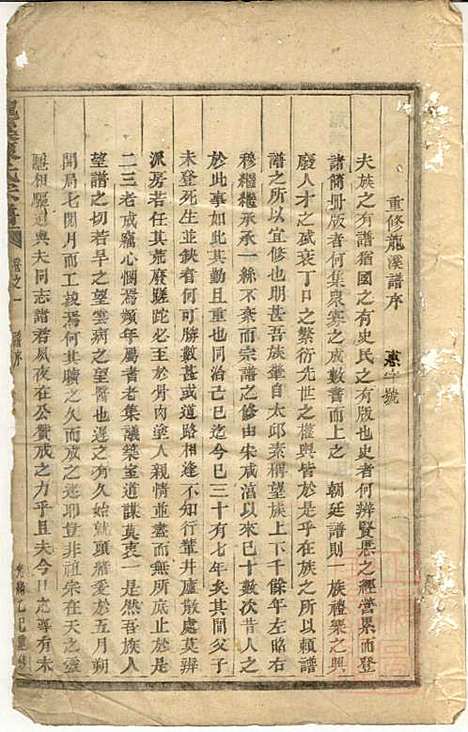 重修龍溪譜序
夫族之有譜猶國之有史氏之有版也史者何辨賢愚之經營累而登
諸簡册版者何集衆寡之成數書而上之　朝廷譜則一族禮樂之興
廢人才之盛衰丁口之繁衍先世之權輿皆於是乎在族之所以賴譜
譜之所以宜修也明甚吾族肇自太邱素稱望族上下千餘年左昭右
穆繼繼承承一絲不紊而宗譜之修由宋咸淳以來已十數次昔人之
於此事如此其勤且重也同治己巳迄今巳三十有七年矣其間父子
未登死生並鈌者何可勝數甚或道路相逢不知行輩井廬散處莫辨
派房若任其荒廢蹉跎必至於骨肉塗人親情並盡而無所底於是
二三老成竊心憫焉頻年屬者老集議築室道謀莫衷一是然吾族人
望譜之切若旱之望雲病之望醫也遲之有久始就頭緒爰於五月朔
開局七閱月而工竣焉何其曠之久而成之速耶豈非祖宗在天之靈
相
與夫同志諸君夙夜在公贊成之力乎且夫今日之尊有未
卷之一
譜序
光緒乙巳重修